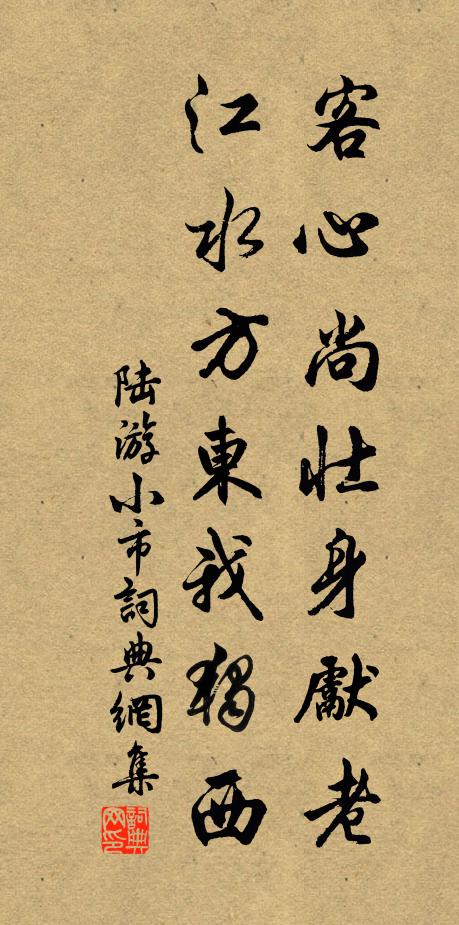 客心尚壯身獻老
江水方東我獨西
陆游小市詞典網集
詞典
网印